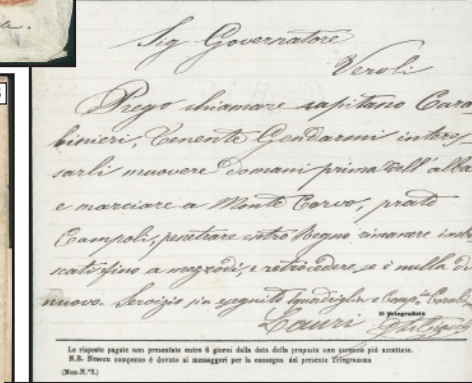 a.
Sig Governatore
Veroli
Prego chiamare capitano Cara
binieri, Tenente Gendarmi interes_
sarli muovere domani prima dell' alba
e marciare a Monte Corvo, prato
Campoli, penetrare entro Regno rimanere imbo
scati fino a mezzodì, e retrocedere se è nulla di
nuovo. Servizio sia eseguito squadriglia e Comp.
Il Telegrafista
Lauri
Le risposte pagate non presentate entro 8 giorni dalla data della proposta non saranno più accettate.
N.B. Nessun compenso è dovuto ai messaggeri per la consegna del presente Telegramma
(Mon.N.°3.)